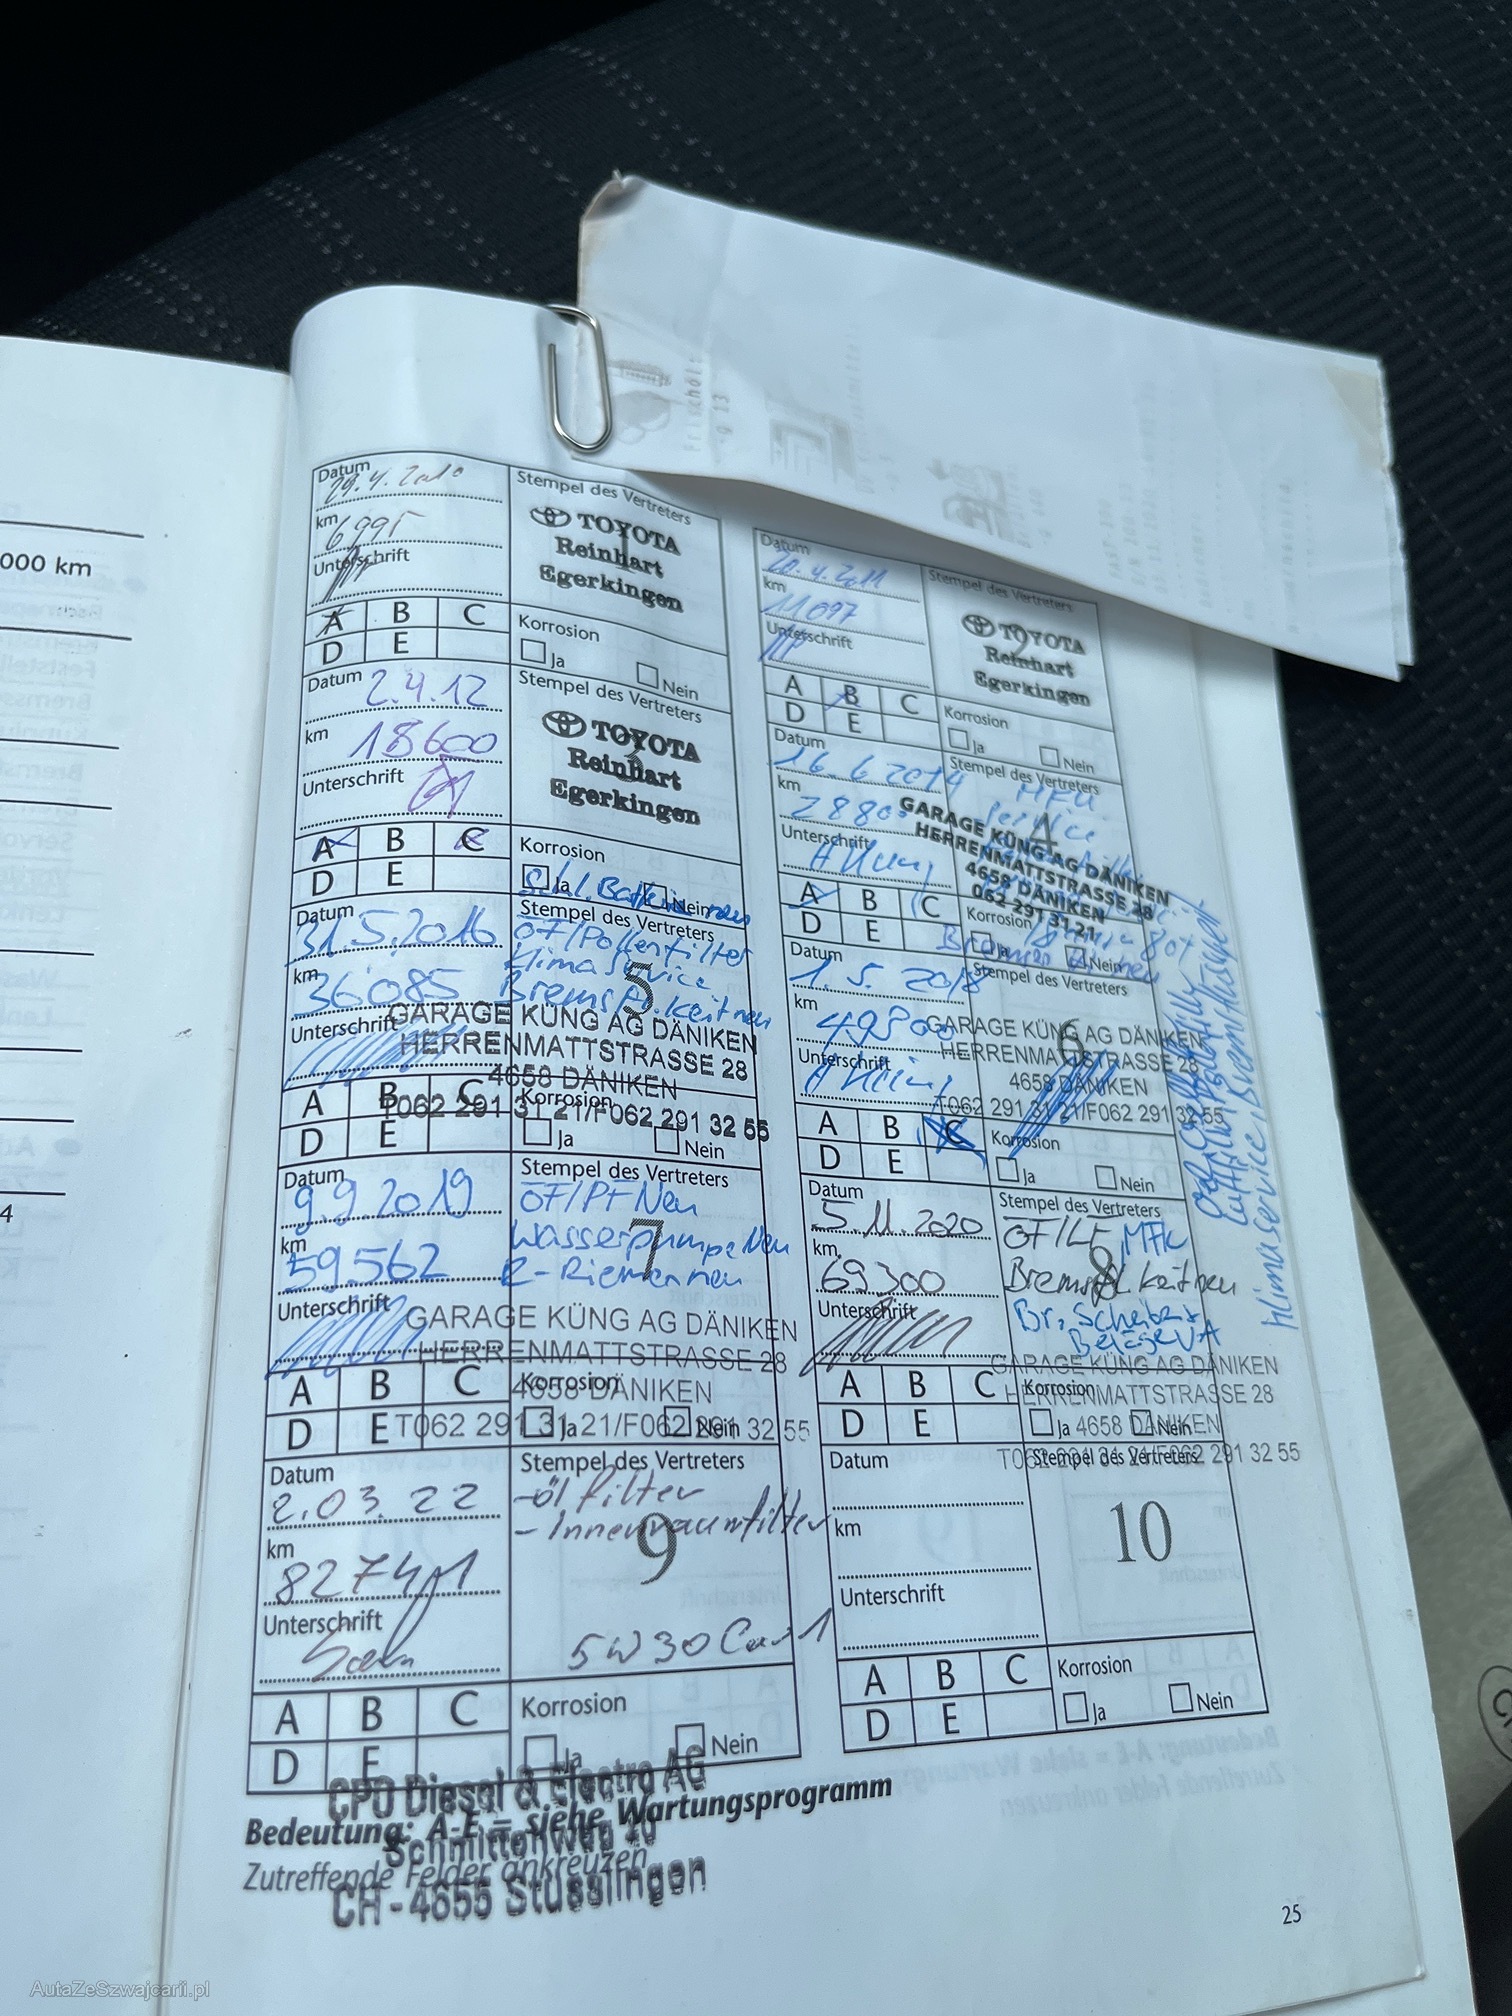 000 km
4
Datum
29.4.2010
km
6995
Unterschrift
Stempel des Vertreters
1
TOYOTA
Reinhart
Egerkingen
A B C
D E
Korrosion
Ja Nein
Datum
20.4.2011
km
11097
Unterschrift
Stempel des Vertreters
2
TOYOTA
Reinhart
Egerkingen
A B C
D E
Korrosion
Ja Nein
Datum
2.4.12
km
18600
Unterschrift
Stempel des Vertreters
3
TOYOTA
Reinhart
Egerkingen
A B C
D E
Korrosion
Ja Nein
Datum
16.6.2014
km
Unterschrift
Stempel des Vertreters
4
Service
GARAGE KÜNG AG DÄNIKEN
HERRENMATTSTRASSE 28
4658 DÄNIKEN
062 291 31 21
A B C
D E
Korrosion
Ja Nein
Datum
31.5.2016
km
36085
Unterschrift
Stempel des Vertreters
ÖF/Pollenfilter
Klimaservice
Bremsfl.keit neu
5
GARAGE KÜNG AG DÄNIKEN
HERRENMATTSTRASSE 28
4658 DÄNIKEN
T062 291 31 21/F062 291 32 55
A B C
D E
Korrosion
Ja Nein
Datum
1.5.2018
km
49800
Unterschrift
Stempel des Vertreters
6
GARAGE KÜNG AG DÄNIKEN
HERRENMATTSTRASSE 28
4658 DÄNIKEN
T062 291 31 21/F062 291 32 55
A B C
D E
Korrosion
Ja Nein
Klimaservice,
Datum
9.9.2019
km
59.562
Unterschrift
Stempel des Vertreters
ÖF/PF Neu
Wasserpumpe Neu
R-Riemen neu
7
GARAGE KÜNG AG DÄNIKEN
HERRENMATTSTRASSE 28
4658 DÄNIKEN
T062 291 31 21/F062 291 32 55
A B C
D E
Korrosion
Ja Nein
Datum
5.11.2020
km
69300
Unterschrift
Stempel des Vertreters
ÖF/LF, MFK
Bremsfl.keit neu
Br. Scheiben +
Beläge VA
8
GARAGE KÜNG AG DÄNIKEN
HERRENMATTSTRASSE 28
4658 DÄNIKEN
T062 291 31 21/F062 291 32 55
A B C
D E
Korrosion
Ja Nein
Datum
2.03.22
km
Unterschrift
Stempel des Vertreters
-öl filter
-Innenraumfilter
9
5W30
A B C
D E
Korrosion
Ja Nein
Datum
km
Unterschrift
Stempel des Vertreters
10
A B C
D E
Korrosion
Ja Nein
CPD Diesel & Electro AG
CH-4655 Stüsslingen
Bedeutung: A-E = siehe Wartungsprogramm
Zutreffende Felder ankreuzen
25
AutaZeSzwajcarii.pl